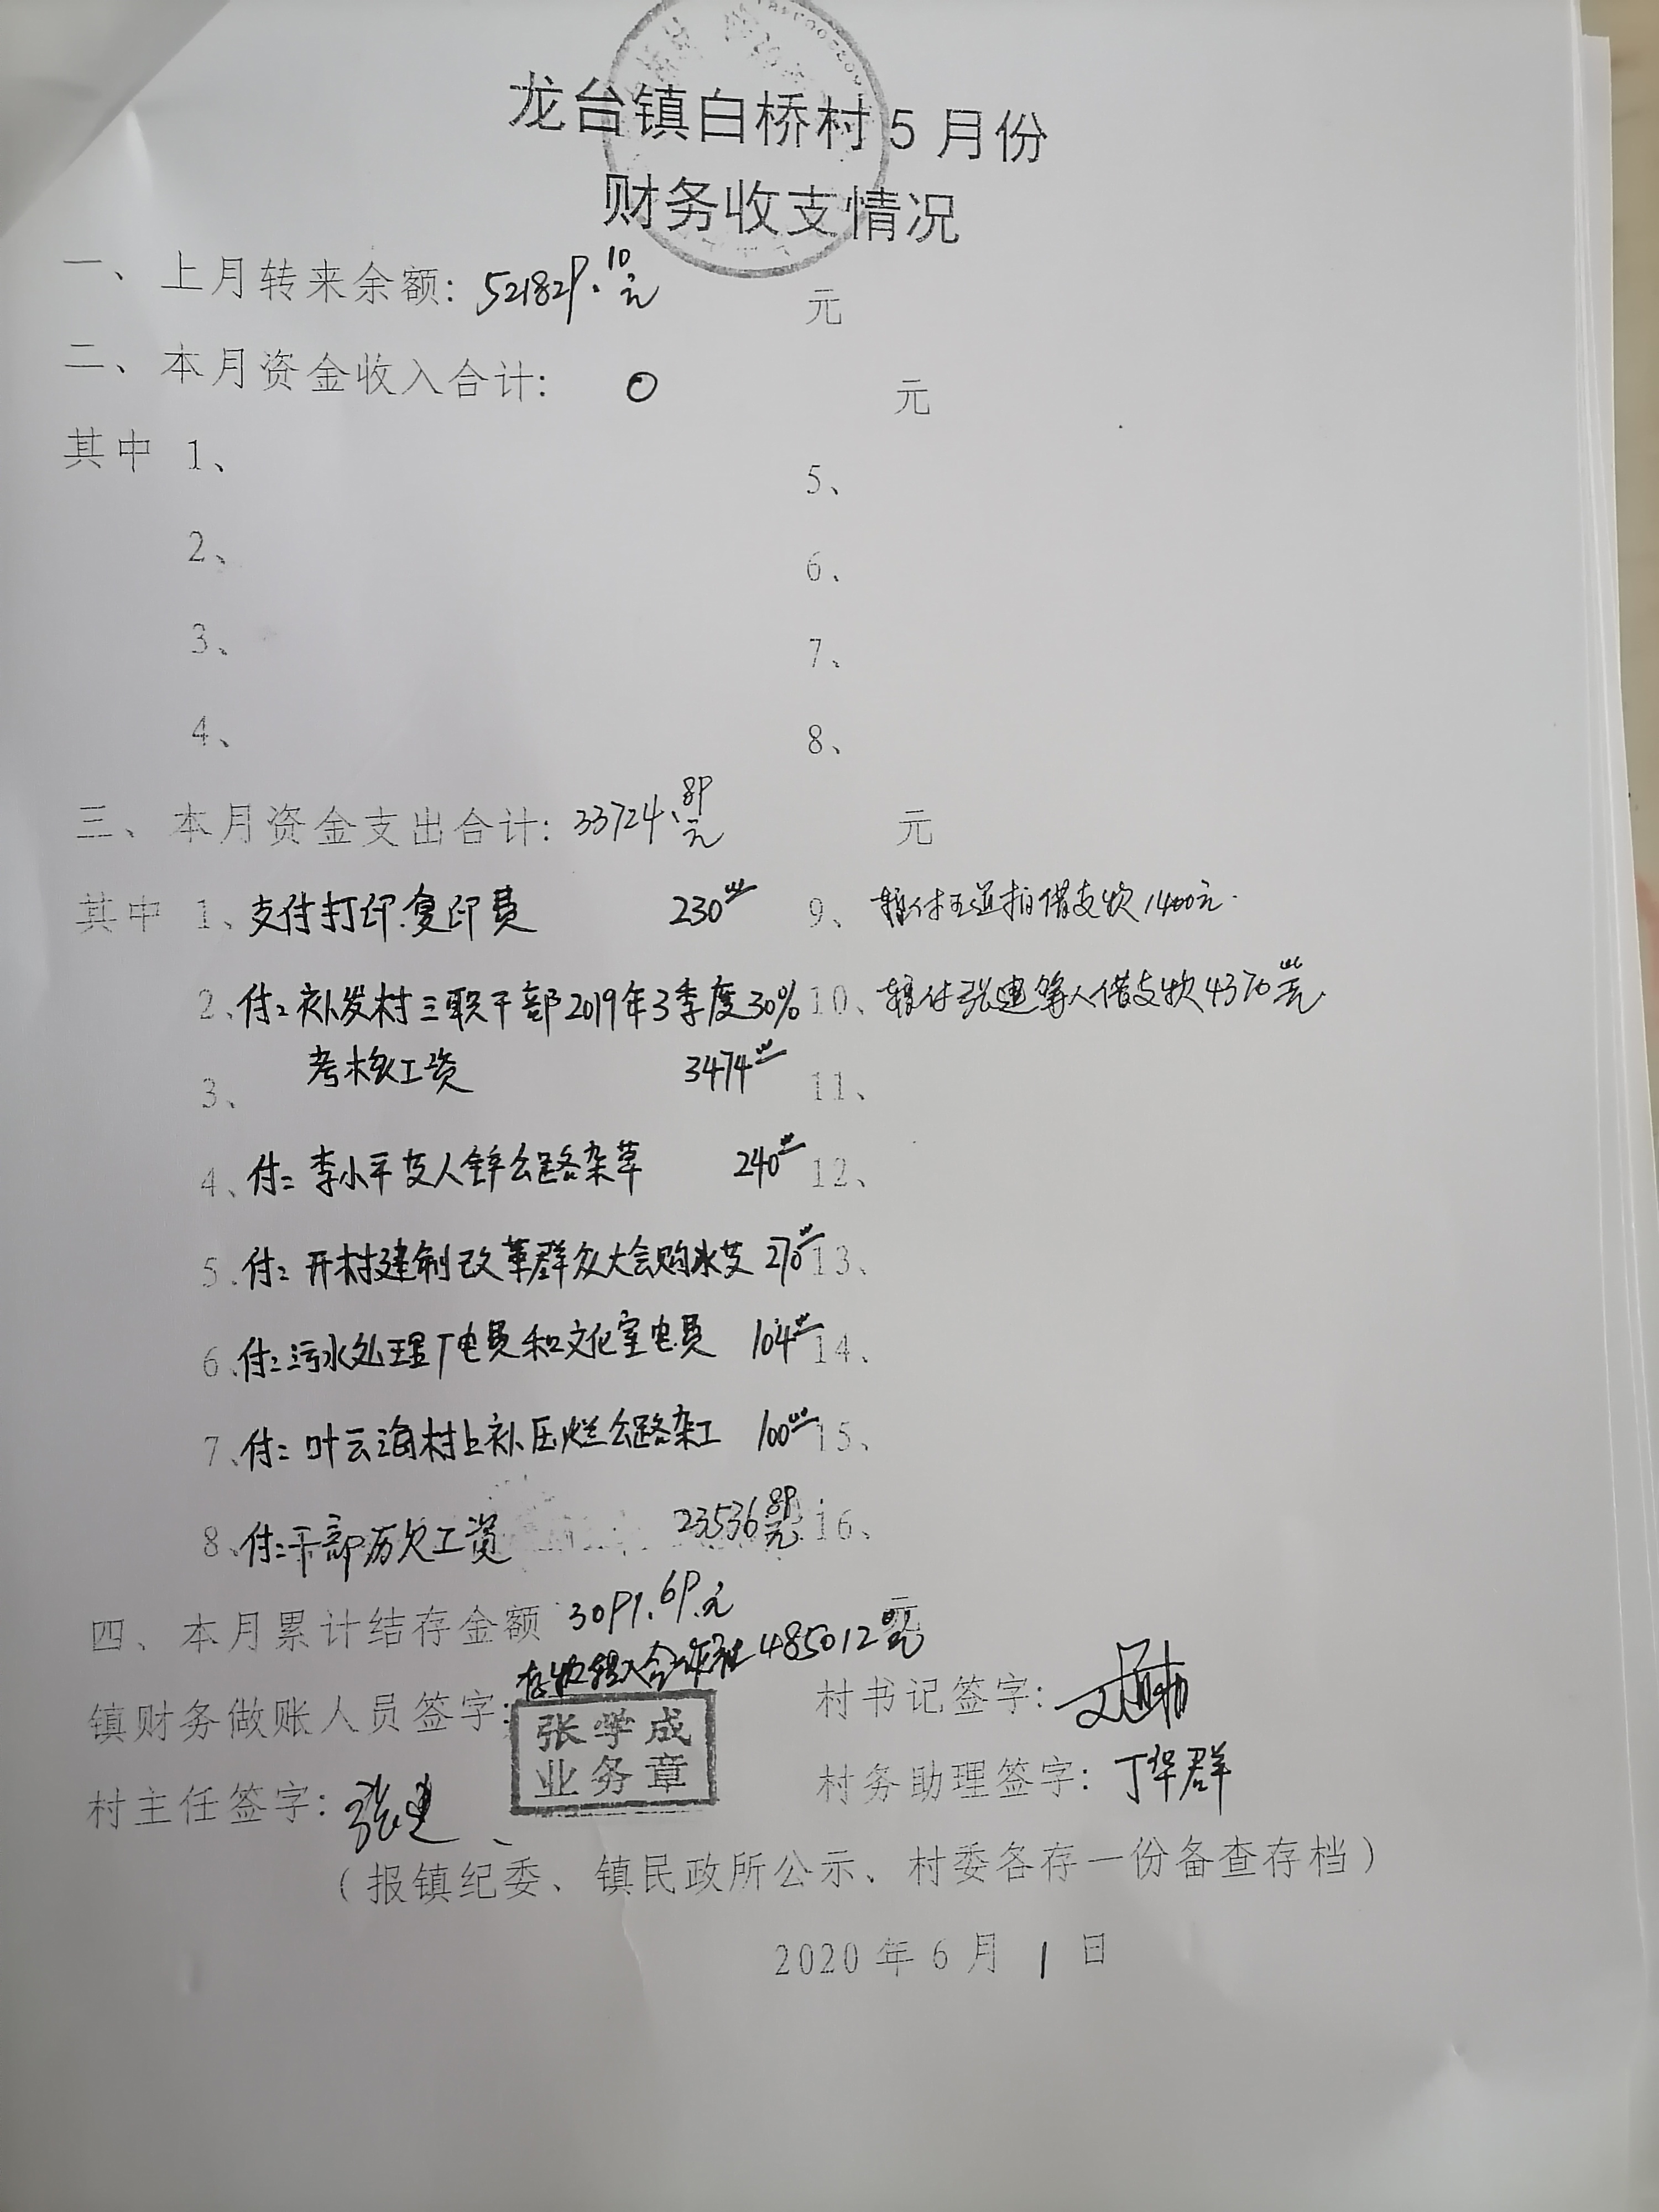 龙台镇白桥村5月份
财务收支情况
一、上月转来余额: 521829.10元 元
二、本月资金收入合计: 0 元
其中 1、 5、
2、 6、
3、 7、
4、 8、
三、本月资金支出合计: 33724.89元 元
其中 1、支付打印.复印费 230.00 9、暂付王道柏借支款1400元.
2、付: 补发村三职干部2019年3季度30% 10、暂付张建等人借支款4370.00元.
3、 考核工资 3474.00 11、
4、付: 李小平支人锌公路杂草 240.00 12、
5、付: 开村建制改革群众大会购水支 270.00 13、
6、付: 污水处理厂电费和文化室电费 104.00 14、
7、付: 叶云海村上补压烂公路杂工 100.00 15、
8、付: 干部历欠工资 23536.89元 16、
四、本月累计结存金额 3091.69元 元
存款转入合作社485012.52元
镇财务做账人员签字: 张学成 业务章 村书记签字:
村主任签字: 张建 村务助理签字: 丁华群
（报镇纪委、镇民政所公示、村委各存一份备查存档）
2020年6月1日